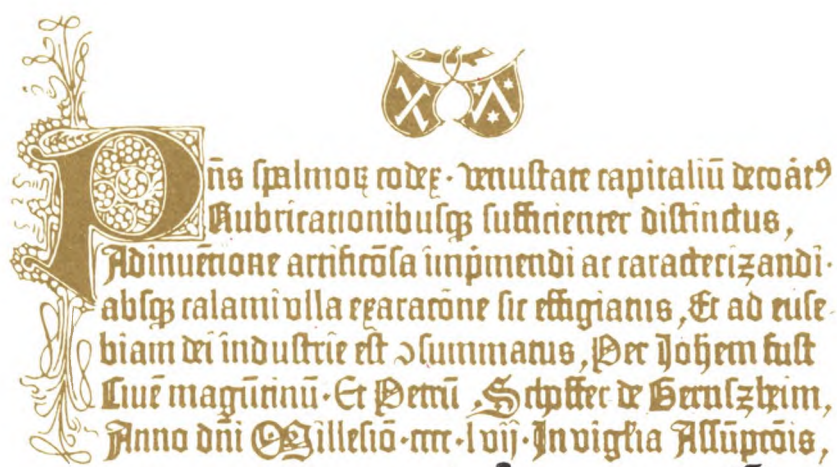 Pn̄s ſpalmoꝝ codex · venuſtate capitaliū decoꝛat⁹
Rubricationibuſqꝫ ſufficienter diſtinctus,
Adinuētione artificōſa imp̄mendi ac caracterizandi ·
abſqꝫ calami vlla exaracōne ſic effigiatus, Et ad euſe-
biam dei induſtrie eſt ↄſummatus, Per Johem fuſt
Ciuē magūtinū · Et Petrū Schoffer de Gernſzheim,
Anno dn̄i Milleſio · cccc · lvij · In vigl̄ia Aſſūpcōis,